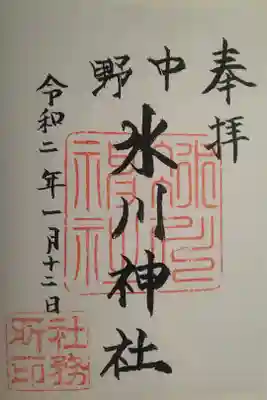 奉拝
中野
氷川神社
令和二年一月十二日
氷川神社
社務所印